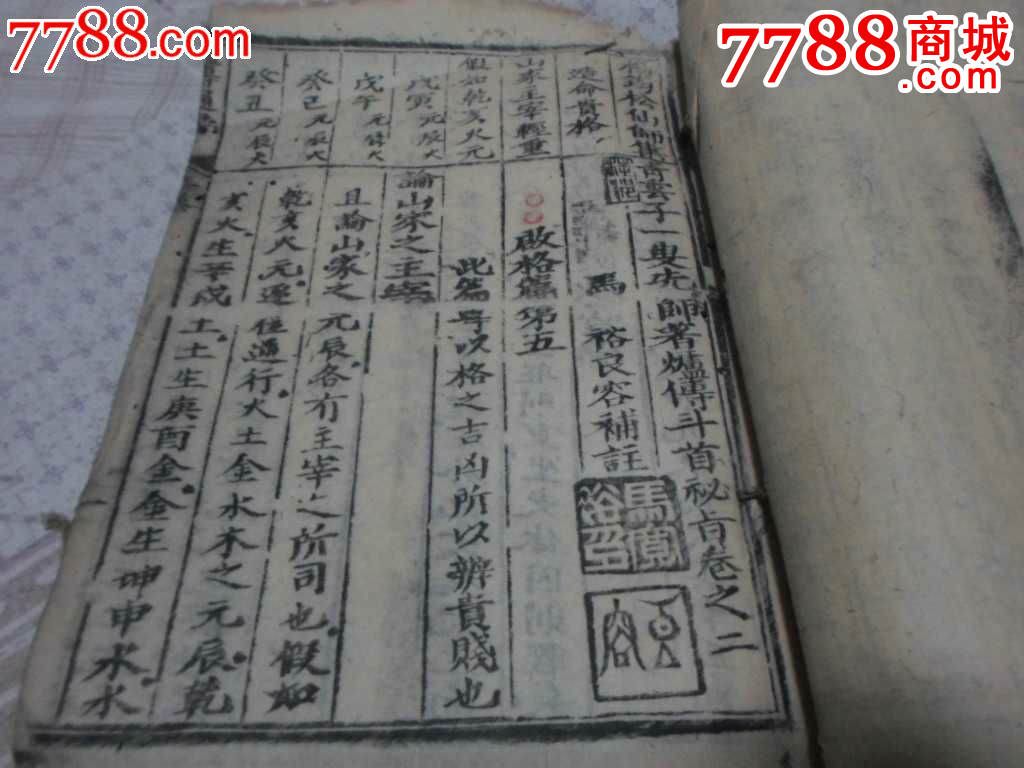 7788.com
7788商城
7788.com
筠松仙師青雲子一師著爐傳斗首祕旨卷之二
造命貴格
山家主宰輕重
假如乾亥火元
戊寅元辰火
戊午元辰火
癸巳元辰火
癸丑元辰火
馬裕良容補註
啟格篇第五
此篇專以格之吉凶所以辨貴賤也
論山家之主宰
且論山家之元辰各有主宰之所司也假如
乾亥火元逐位遁行火土金水木之元辰乾
亥火生辛戌土土生庚酉金金生坤申水水